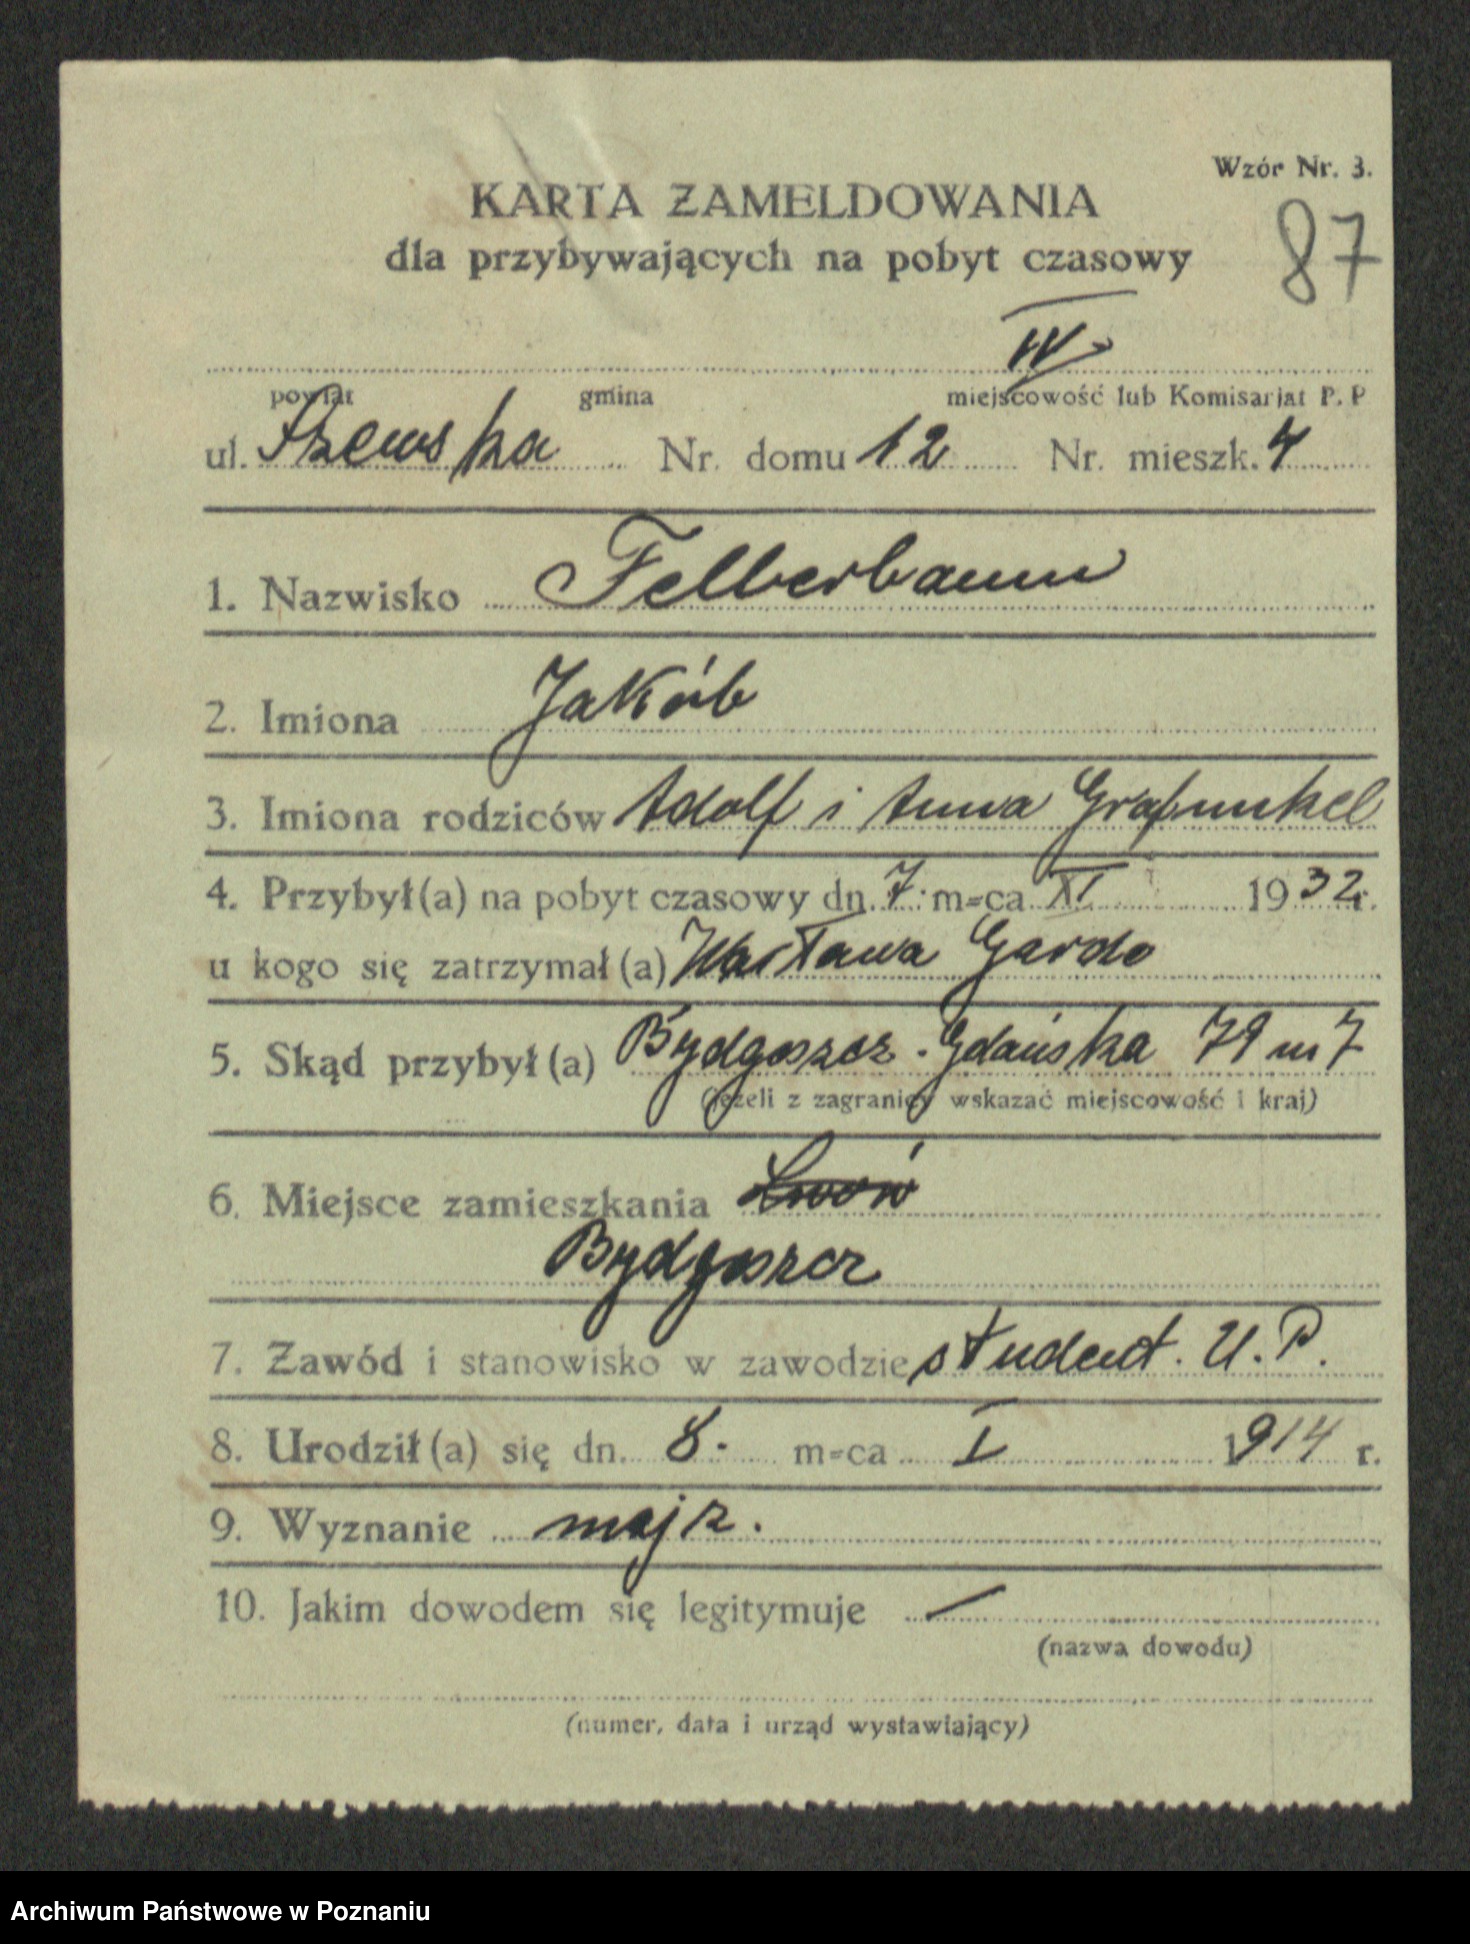 Wzór Nr. 3.
KARTA ZAMELDOWANIA
87
dla przybywających na pobyt czasowy
IV
powiat gmina miejscowość lub Komisarjat P. P
ul. Szewska Nr. domu 12 Nr. mieszk. 4
1. Nazwisko Felberbaum
2. Imiona Jakób
3. Imiona rodziców Adolf i Anna Grafunkel
4. Przybył(a) na pobyt czasowy dn. 7. m-ca XI 1932 r.
u kogo się zatrzymał(a) Wacława Gardo
5. Skąd przybył(a) Bydgoszcz. Gdańska 79 m 7
(jeżeli z zagranicy wskazać miejscowość i kraj)
6. Miejsce zamieszkania Lwów
Bydgoszcz
7. Zawód i stanowisko w zawodzie student. U. P.
8. Urodził(a) się dn. 8. m-ca I 1914 r.
9. Wyznanie mojż.
10. Jakim dowodem się legitymuje —
(nazwa dowodu)
(numer, data i urząd wystawiający)
Archiwum Państwowe w Poznaniu